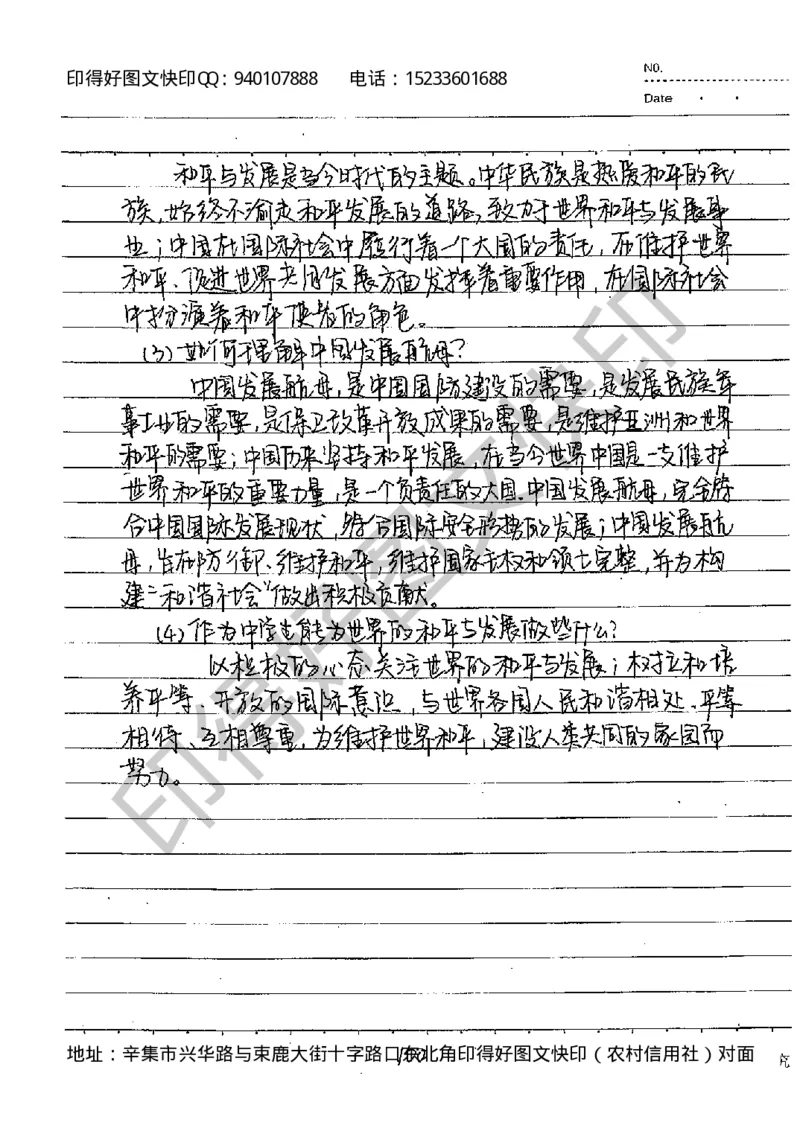 印得好图文快印QQ：940107888 电话：15233601688
NO.
Date
和平与发展是当今时代的主题。中华民族是热爱和平的民
族，始终不渝走和平发展的道路，致力于世界和平与发展事
业；中国在国际社会中履行着一个大国的责任，在维护世界
和平、促进世界共同发展方面发挥着重要作用，在国际社会
中扮演着和平使者的角色。
（3）如何理解中国发展航母？
中国发展航母，是中国国防建设的需要，是发展民族军
事工业的需要，是保卫改革开放成果的需要，是维护亚洲和世界
和平的需要；中国历来坚持和平发展，在当今世界中国是一支维护
世界和平的重要力量，是一个负责任的大国。中国发展航母，完全符
合中国国际发展现状，符合国际安全形势的发展；中国发展航
母，旨在防御、维护和平，维护国家主权和领土完整，并为构
建“和谐社会”做出积极贡献。
（4）作为中学生能为世界的和平与发展做些什么？
以积极的心态关注世界的和平与发展；树立和培
养平等、开放的国际意识，与世界各国人民和谐相处、平等
相待、互相尊重，为维护世界和平，建设人类共同的家园而
努力。
印得好图文快印
地址：辛集市兴华路与束鹿大街十字路口东北角印得好图文快印（农村信用社）对面